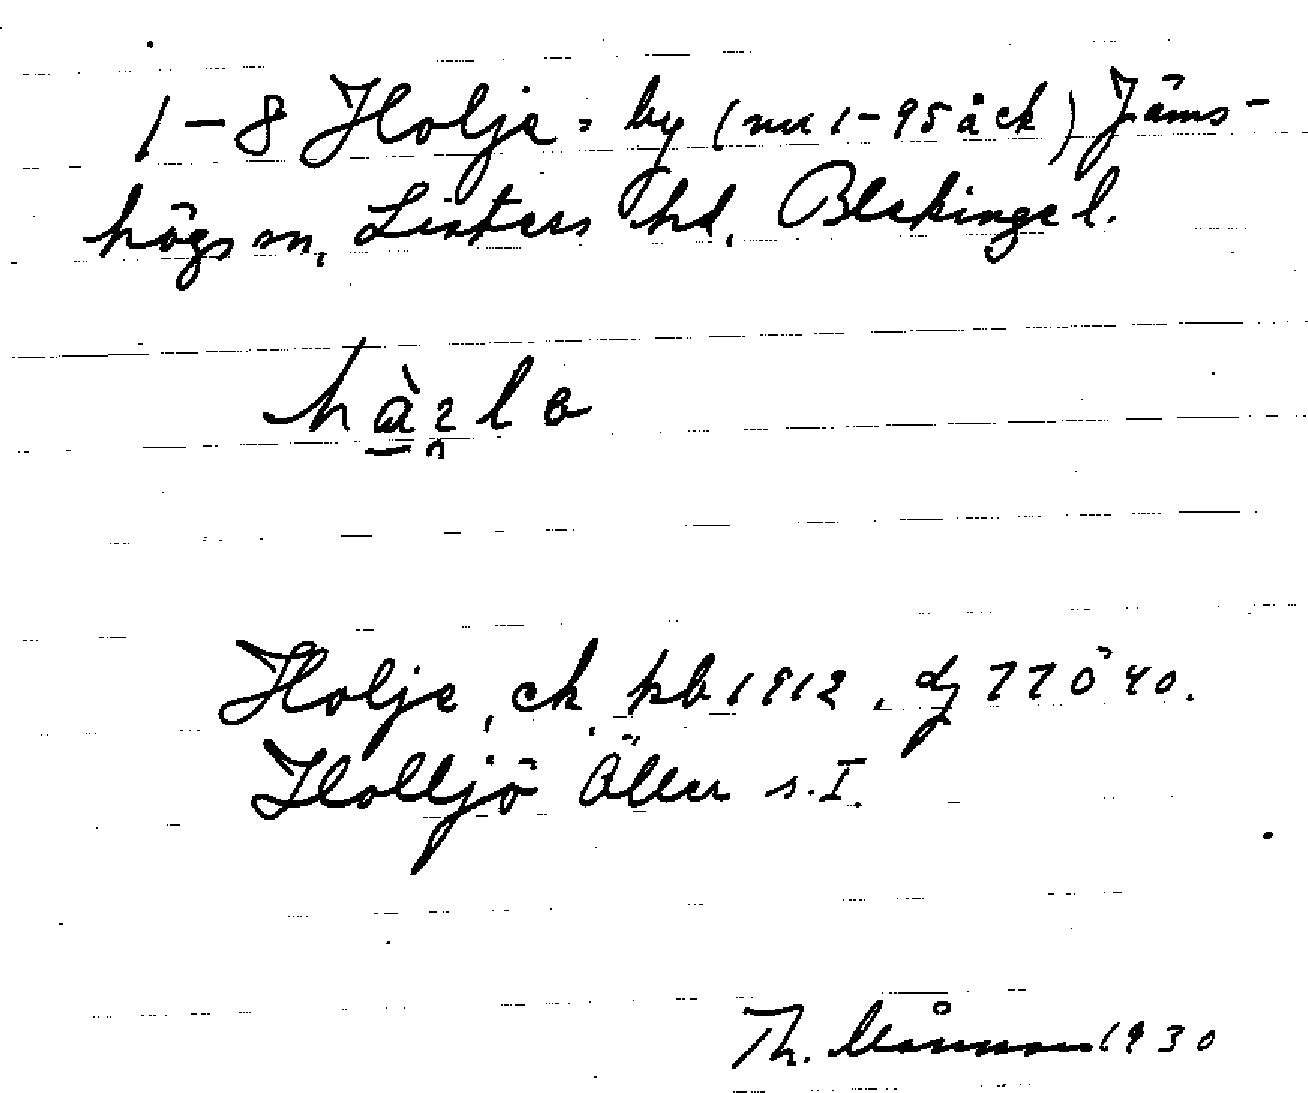 1-8 Holje = by (nu 1-95 å ck) Jäms-
högs sn, Listers hd, Blekinge l.
Holje, ck, kb 1912, dz 77 ö 40.
Holljö Öller s. I.
Th. 1930